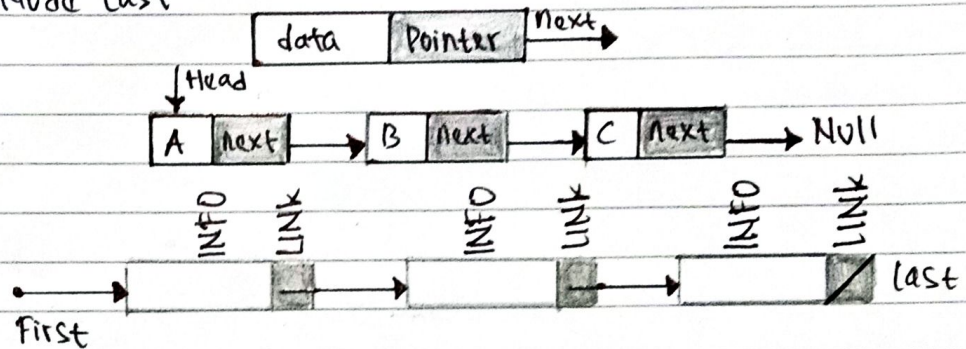 data Pointer next
Head
A next B next C next Null
INFO LINK INFO LINK INFO LINK
Last
First